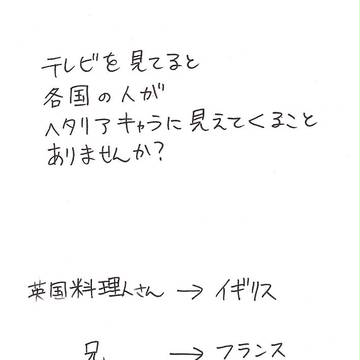 テレビを見てると
各国の人が
ヘタリアキャラに見えてくること
ありませんか?
英国料理人さん → イギリス
兄 → フランス